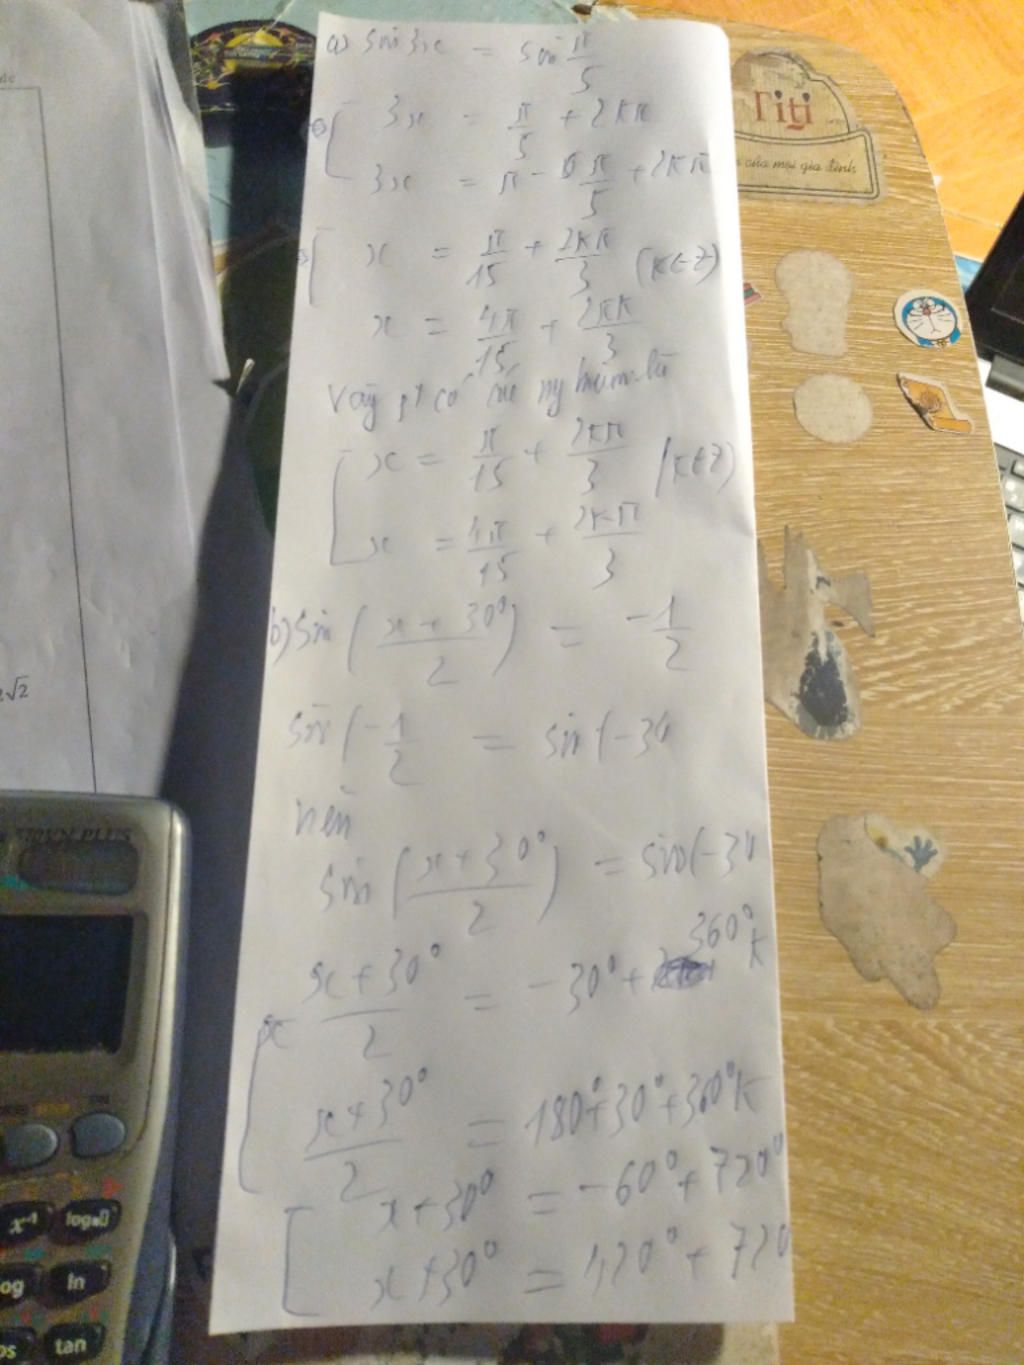 a) sin 3x = sin π/5
⇔ [ 3x = π/5 + 2kπ
3x = π - π/5 + 2kπ
⇔ [ x = π/15 + 2kπ/3 (k∈Z)
x = 4π/15 + 2πk/3
Vậy pt có các nghiệm là
[ x = π/15 + 2kπ/3 (k∈Z)
x = 4π/15 + 2kπ/3
b) sin (x+30°/2) = -1/2
sin (-1/2 = sin (-30
nên
sin (x+30°/2) = sin(-30
[ x+30°/2 = -30° + 360°k
x+30°/2 = 180°+30°+360°k
[ x+30° = -60° + 720°
x+30° = 420° + 720
Titi
của mọi gia đình
2√2
570VN PLUS
ON
x⁻¹
log
ln
tan